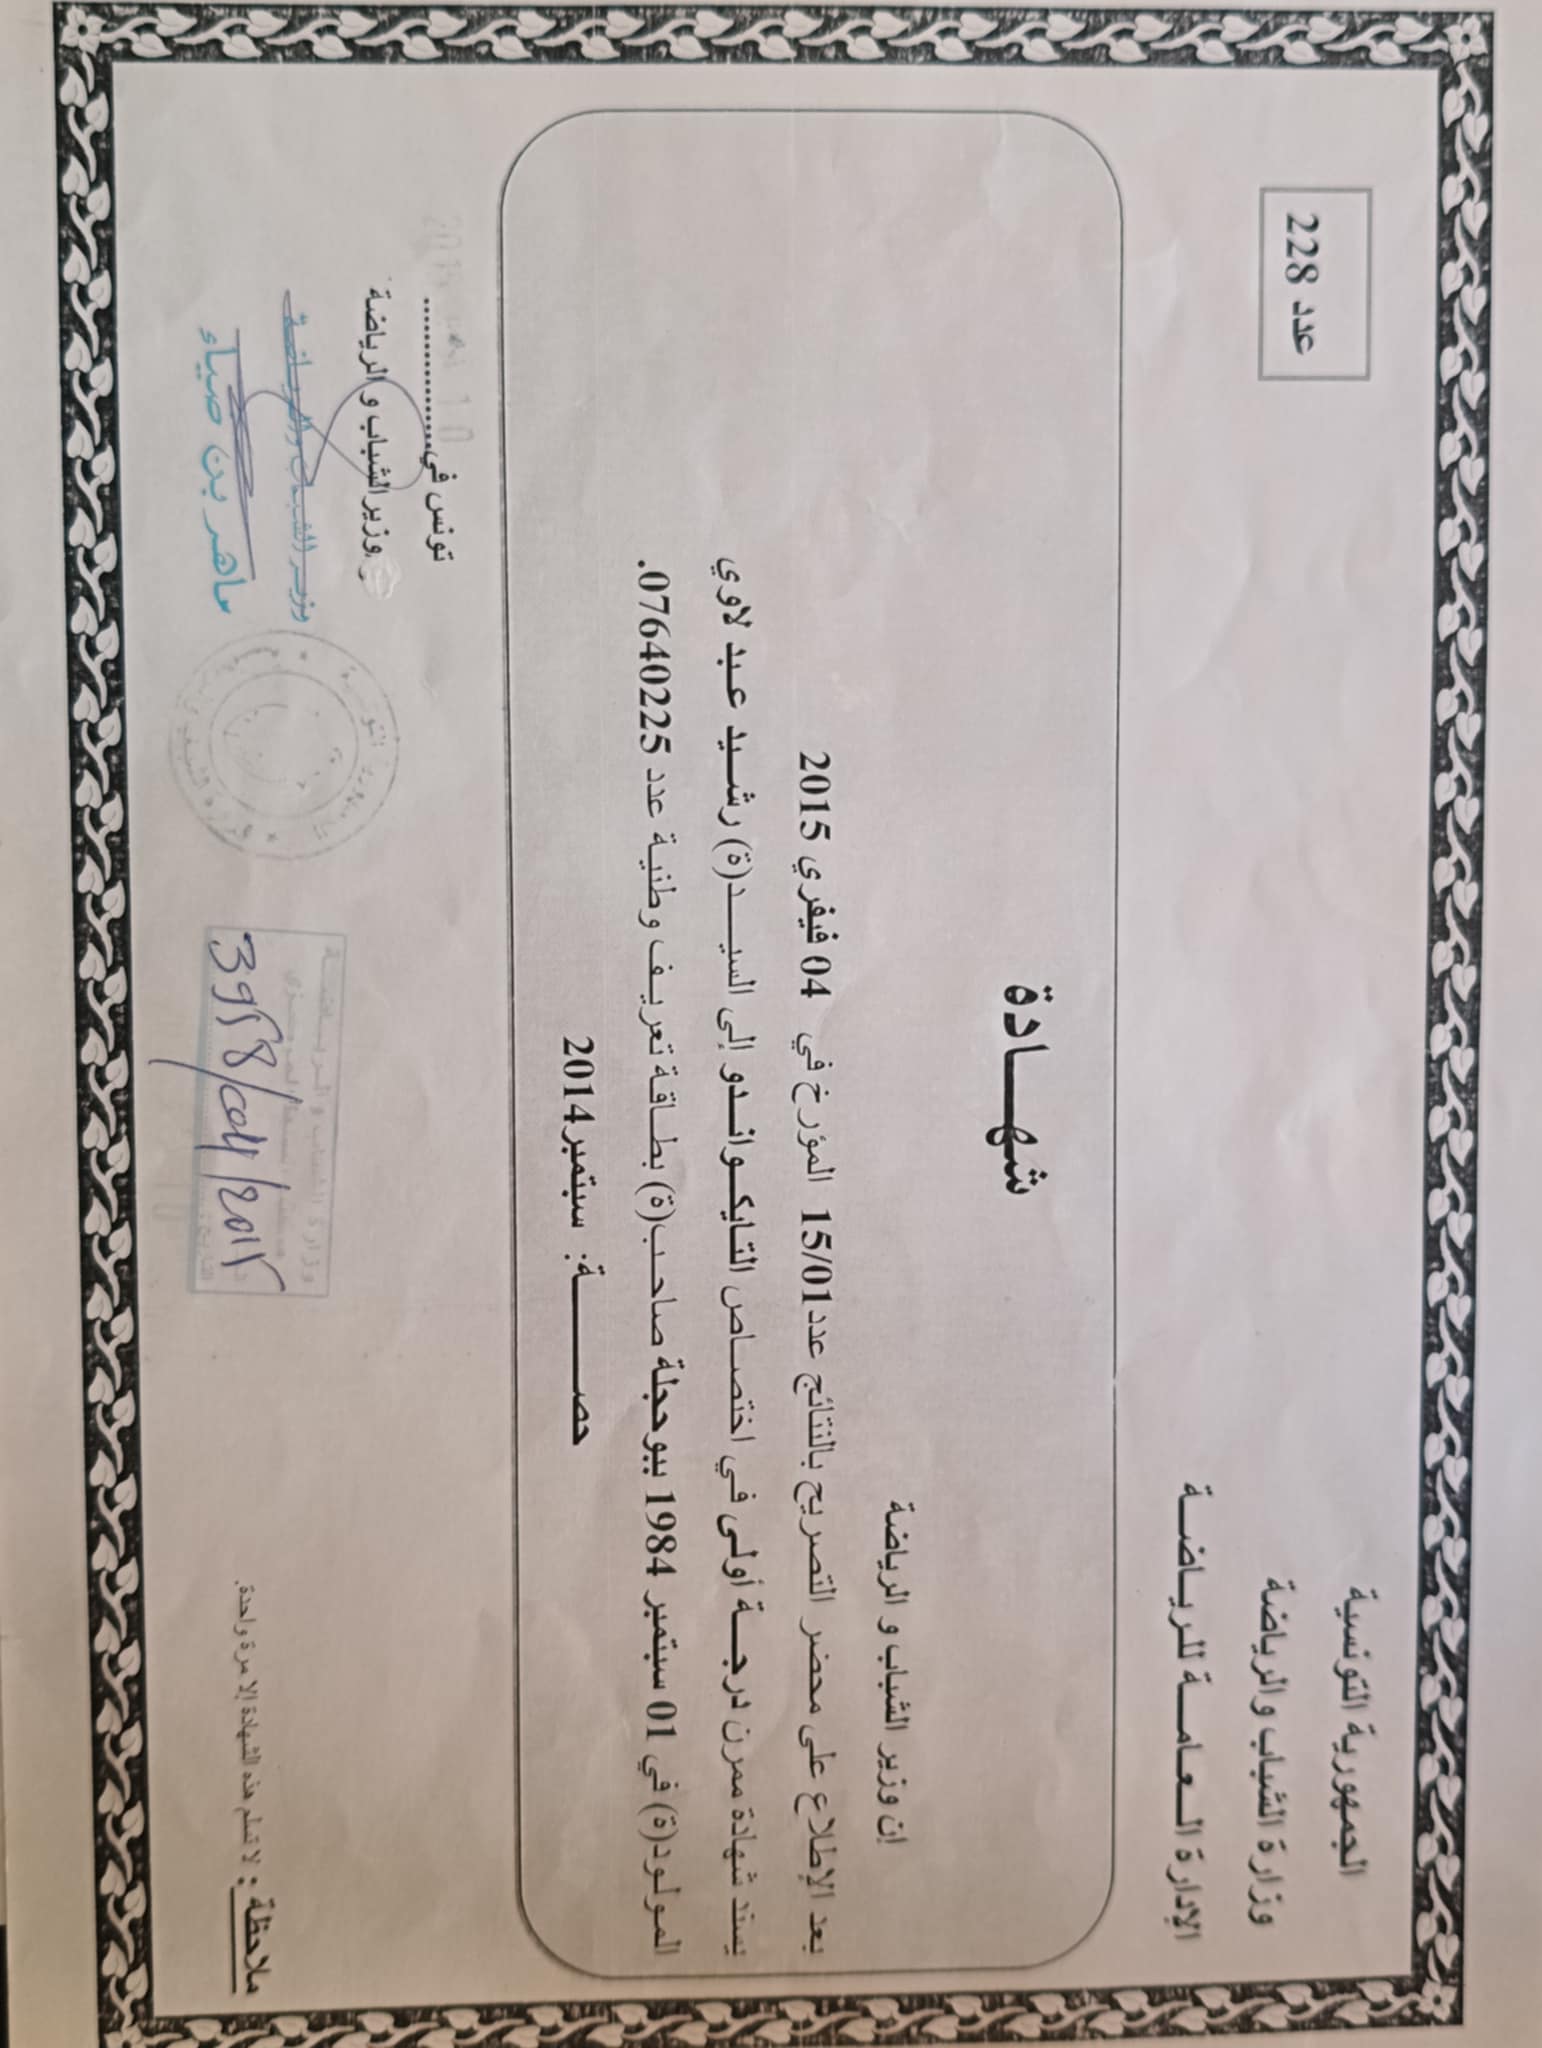 الجمهورية التونسية
وزارة الشباب والرياضة
الإدارة العامة للرياضة
عدد 228
شهادة
إن وزير الشباب و الرياضة
بعد الإطلاع على محضر التصريح بالنتائج عدد15/01 المؤرخ في 04 فيفري 2015
يسند شهادة ممرن درجة أولى في اختصاص التايكواندو إلى السيد(ة) رشيد عبد لاوي
المولود(ة) في 01 سبتمبر 1984 ببوحجلة صاحب(ة) بطاقة تعريف وطنية عدد 07640225.
حصة: سبتمبر2014
تونس في
وزير الشباب و الرياضة
وزير الشباب والرياضة
ماهر بن ضياء
ملاحظة : لا تسلم هذه الشهادة إلا مرة واحدة.